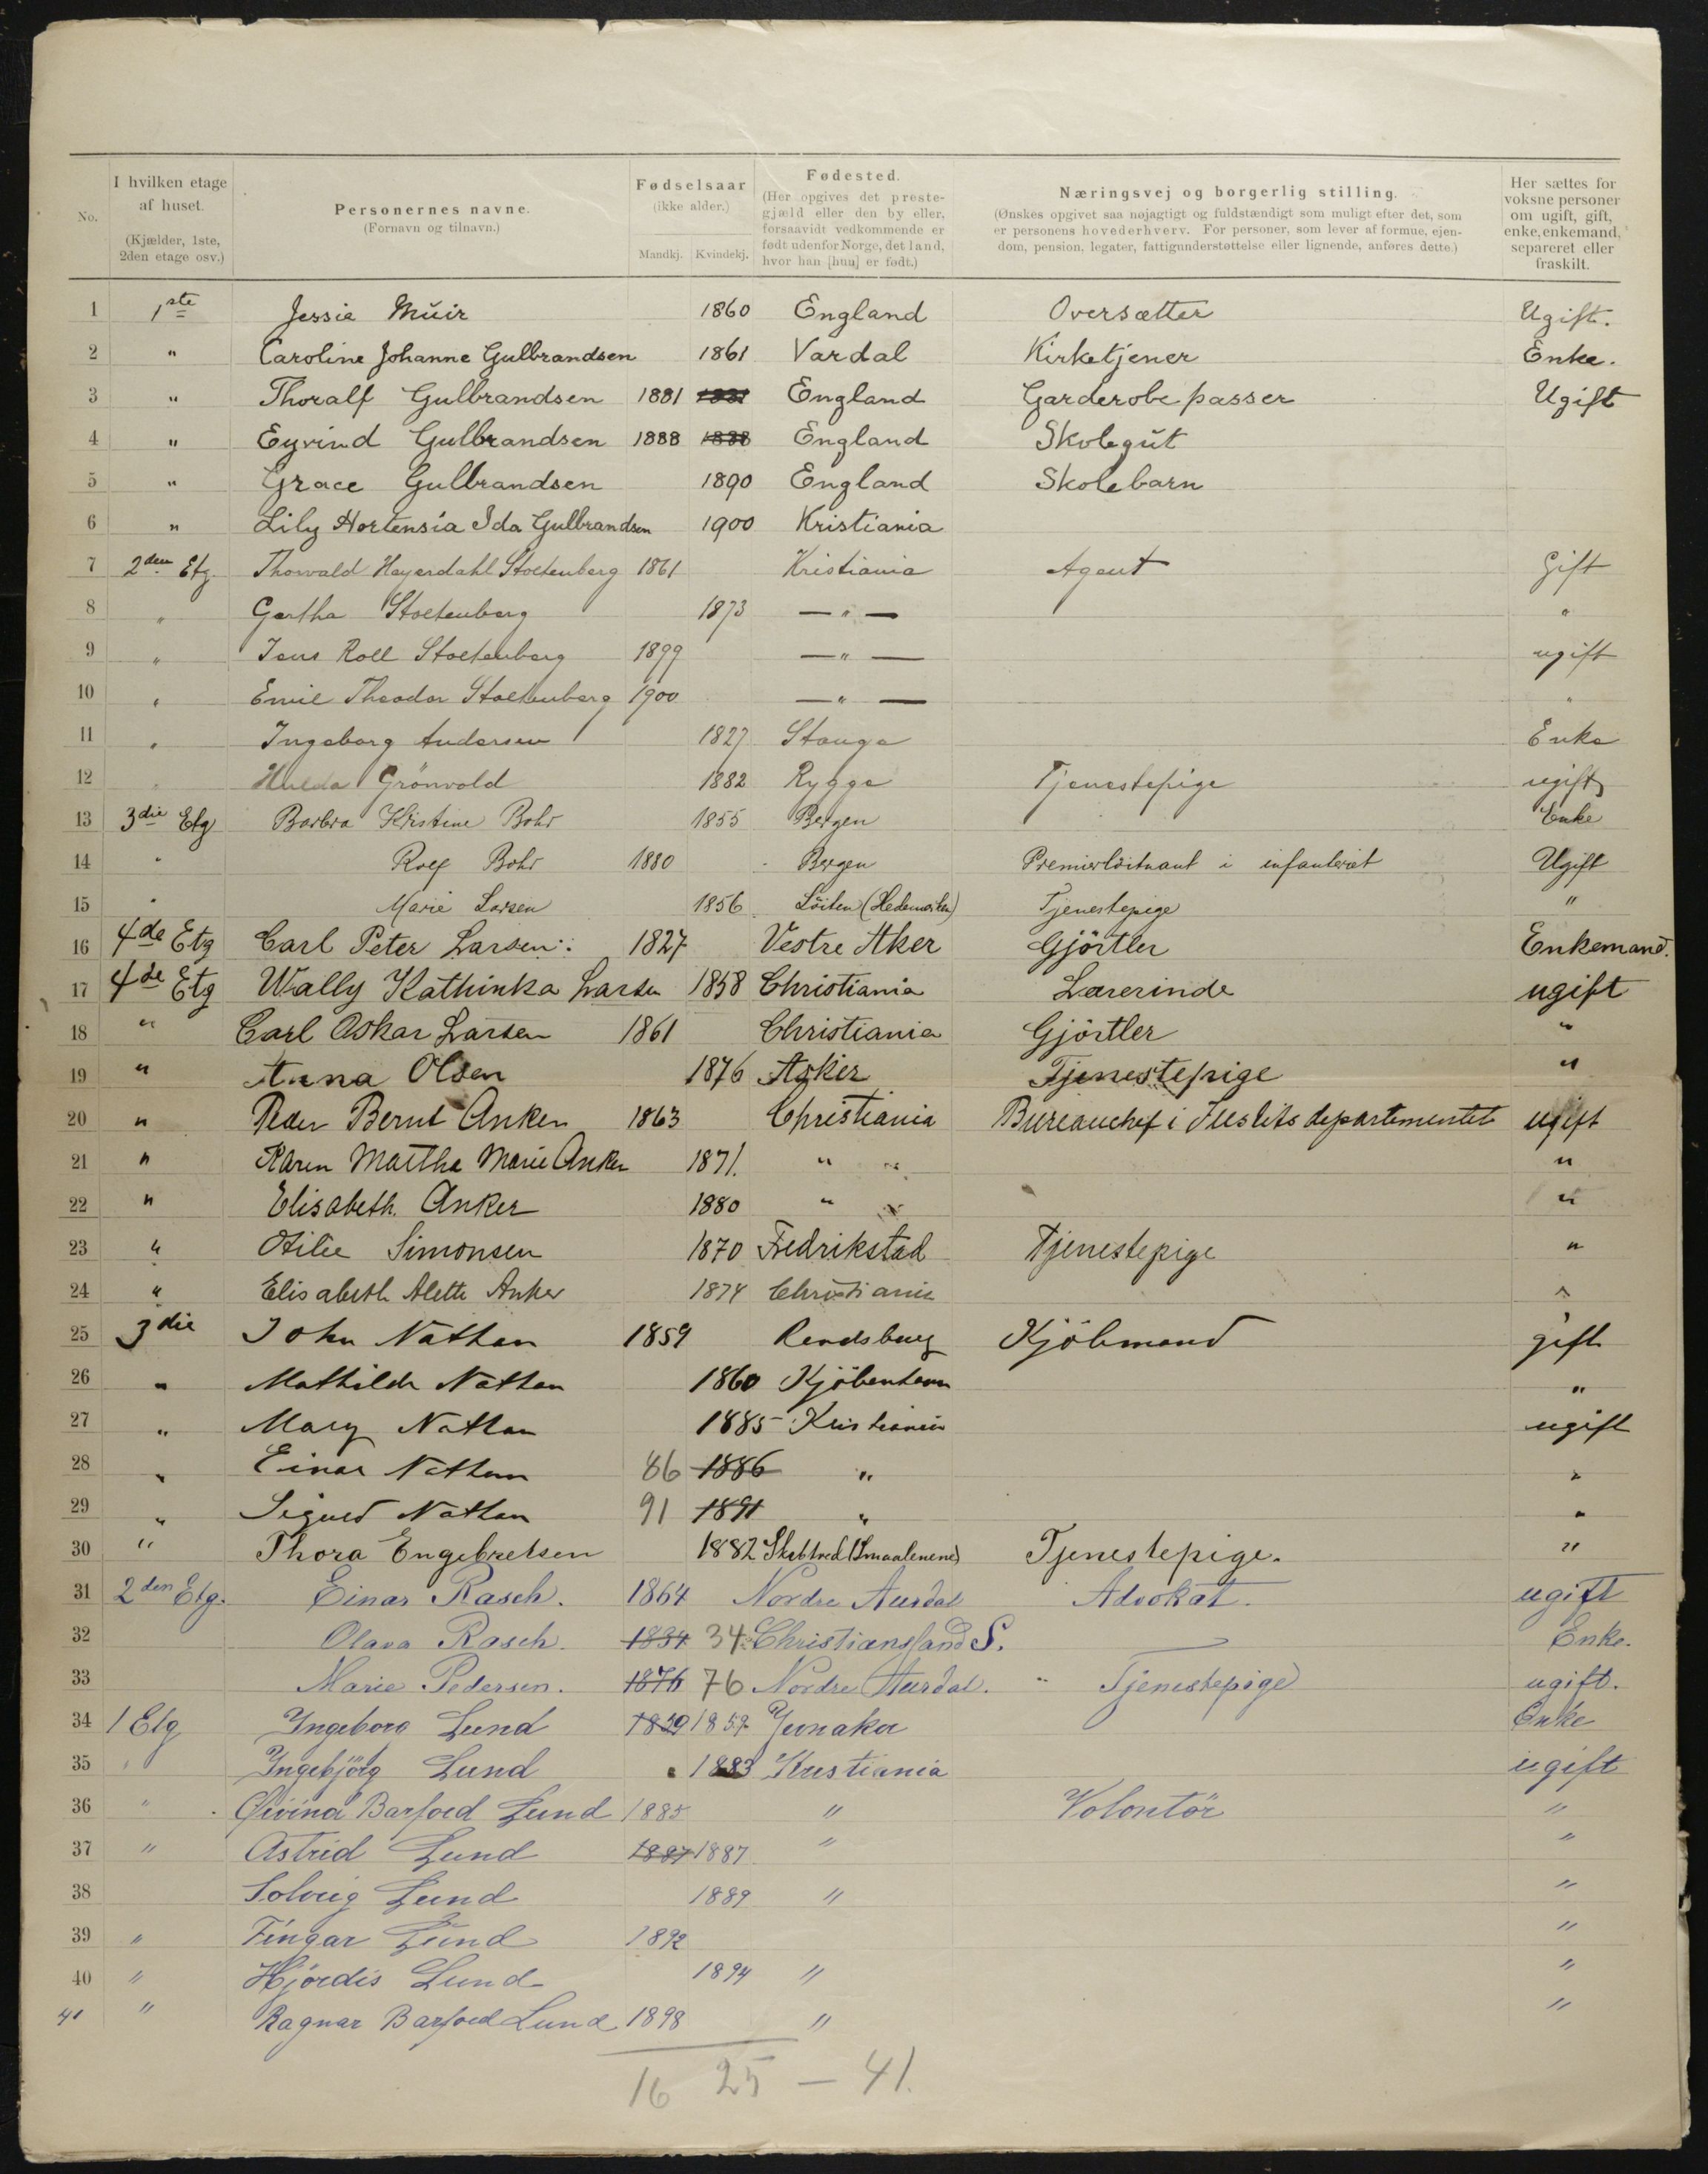 No.
I hvilken etage af huset.
(Kjælder, 1ste, 2den etage osv.)
Personernes navne.
(Fornavn og tilnavn.)
Fødselsaar
(ikke alder.)
Mandkj. Kvindekj.
Fødested.
(Her opgives det prestegjæld eller den by eller, forsaavidt vedkommende er født udenfor Norge, det land, hvor han [hun] er født.)
Næringsvej og borgerlig stilling.
(Ønskes opgivet saa nøjagtigt og fuldstændigt som muligt efter det, som er personens hovederhverv. For personer, som lever af formue, ejendom, pension, legater, fattigunderstøttelse eller lignende, anføres dette.)
Her sættes for voksne personer om ugift, gift, enke, enkemand, separeret eller fraskilt.
1 1ste Jessie Muir 1860 England Oversætter Ugift.
2 " Caroline Johanne Gulbrandsen 1861 Vardal Kirketjener Enke.
3 " Thoralf Gulbrandsen 1881 1881 England Garderobepasser Ugift
4 " Eyvind Gulbrandsen 1888 1888 England Skolegut
5 " Grace Gulbrandsen 1890 England Skolebarn
6 " Lily Hortensia Ida Gulbrandsen 1900 Kristiania
7 2den Etg. Thorvald Heyerdahl Stoltenberg 1861 Kristiania Agent Gift
8 " Gertha Stoltenberg 1873 — " — "
9 " Jens Roll Stoltenberg 1899 — " — ugift
10 " Emil Theodor Stoltenberg 1900 — " — "
11 " Ingeborg Andersen 1827 Stange Enke
12 " Hulda Grönvold 1882 Rygge Tjenestepige ugift
13 3die Etg Barbra Kristine Bohr 1855 Bergen Enke
14 " Rolf Bohr 1880 Bergen Premierlöitnant i infanteriet Ugift
15 " Marie Larsen 1856 Löiten (Hedemarken) Tjenestepige "
16 4de Etg Carl Peter Larsen 1827 Vestre Aker Gjörtler Enkemand.
17 4de Etg Wally Kathinka Larsen 1858 Christiania Lærerinde ugift
18 " Carl Oskar Larsen 1861 Christiania Gjörtler "
19 " Anna Olsen 1876 Asker Tjenestepige "
20 " Peder Bernt Anker 1863 Christiania Bureauchef i Justitsdepartementet ugift
21 " Karen Martha Marie Anker 1871. " " "
22 " Elisabeth Anker 1880 " " "
23 " Otilie Simonsen 1870 Fredrikstad Tjenestepige "
24 " Elisabeth Alette Anker 1874 Christiania "
25 3die John Nathan 1859 Rendsburg Kjöbmand gift
26 " Mathilde Nathan 1860 Kjöbenhavn "
27 " Mary Nathan 1885 Kristiania ugift
28 " Einar Nathan 86 1886 " "
29 " Sigurd Nathan 91 1891 " "
30 " Thora Engebretsen 1882 (Smaalenene) Tjenestepige. "
31 2den Etg. Einar Rasch. 1864 Nordre Aurdal Advokat. ugift
32 Olava Rasch. 1834 34 Christianssand S. — Enke.
33 Marie Pedersen. 1876 76 Nordre Aurdal. " Tjenestepige ugift.
34 1 Etg Ingeborg Lund 1859 1859 Jevnaker Enke
35 " Ingebjörg Lund 1883 Kristiania ugift
36 " Øivind Barfoed Lund 1885 " Volontör "
37 " Astrid Lund 1887 1887 " "
38 Solveig Lund 1889 " "
39 " Fingar Lund 1892 "
40 " Hjördis Lund 1894 " "
41 " Ragnar Barfoed Lund 1898 " "
16 25 — 41.